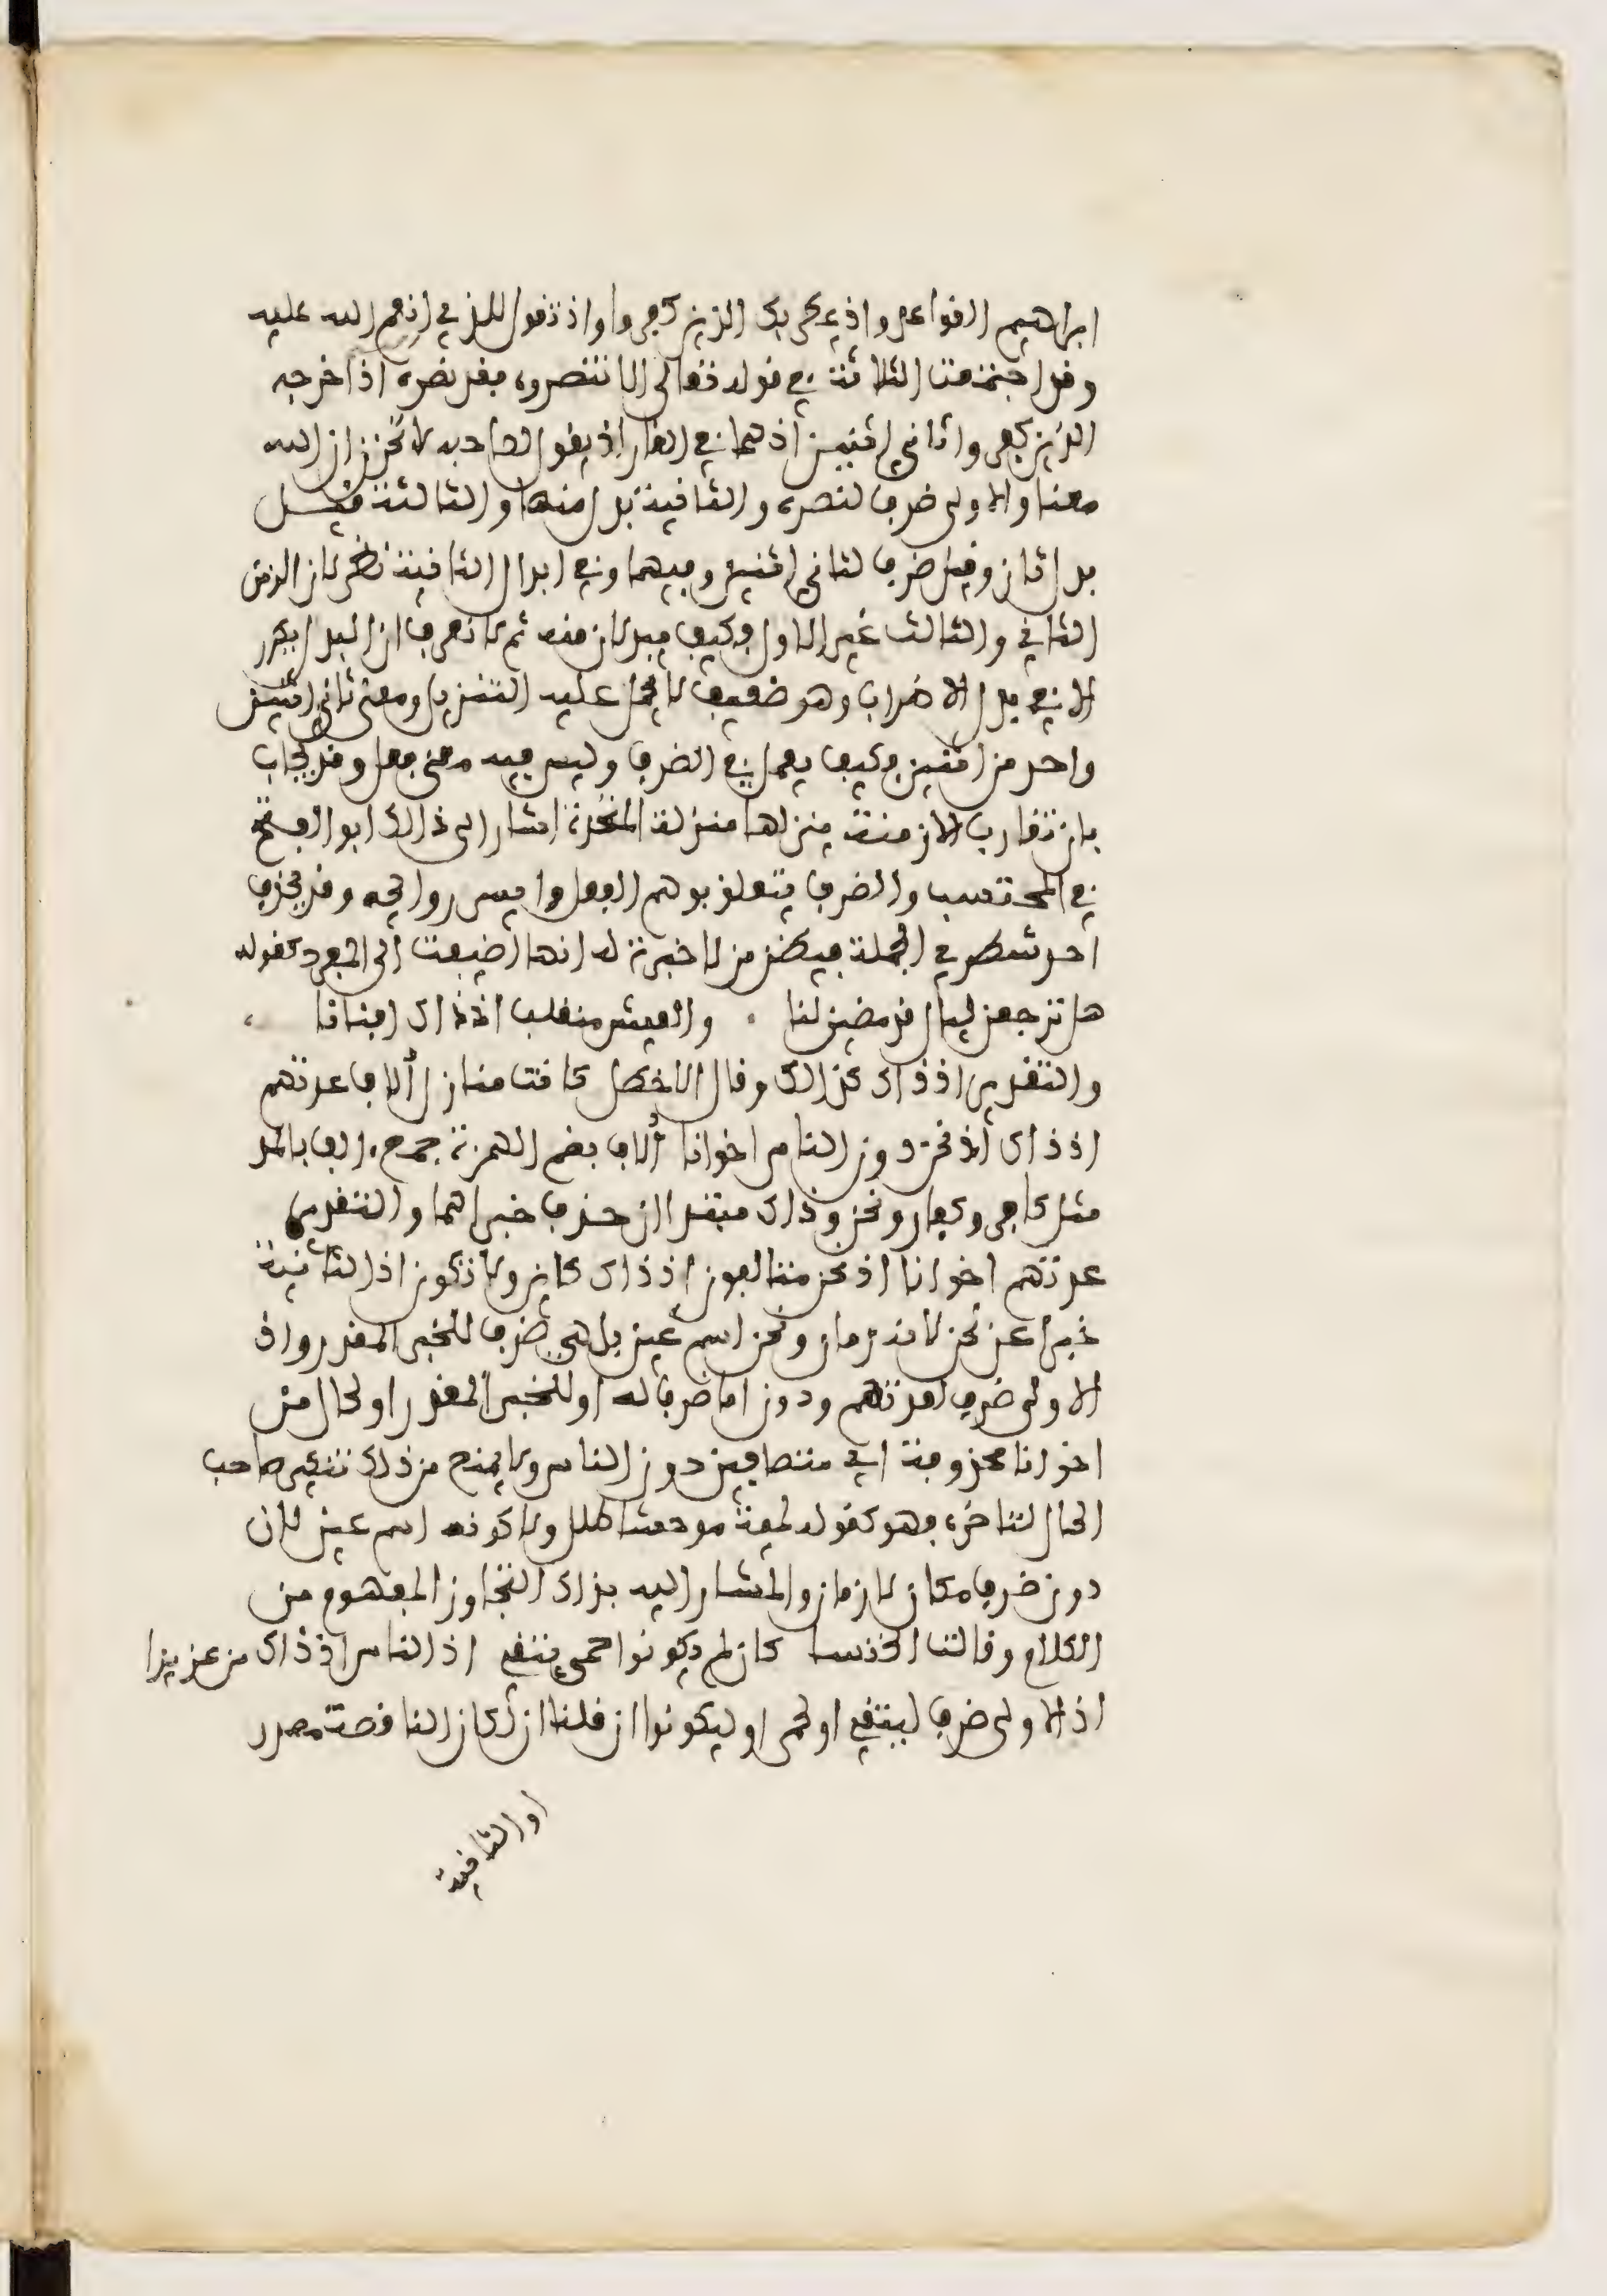 ابراهيم القواعد واذ يمكر بك الذين كفروا واذ تقول للذي انعم الله عليه
وقد اجتمعت الثلاثة في قوله تعالى الا تنصروه فقد نصره اذ اخرجه
الذين كفروا ثاني اثنين اذ هما في الغار اذ يقول لصاحبه لا تحزن ان الله
معنا والاولى ضرف لنصره والثانية بدل منها والثالثة قيل
بدل ثان وقيل ضرف لثاني اثنين وفيهما وفي ابدال الثانية نظر لان الزمن
الثاني والثالث غير الاول فكيف يبدلان منه ثم لا نعرف ان البدل يتكرر
الا في بدل الاضراب وهو ضعيف لا يحمل عليه التنزيل ومعنى ثاني اثنين
واحد من اثنين فكيف يعمل في الضرف وليس فيه معنى فعل وقد يجاب
بان تقارب الازمنة ينزلها منزلة المتحدة اشار الى ذالك ابو الفتح
في المحتسب والضرف يتعلق بوهم الفعل وايسر روائحه وقد يحذف
احد شطري الجملة فيظن من لا خبرة له انها اضيفت الى المفرد كقوله
هل ترجعن ليال قد مضين لنا . والعيش منقلب اذ ذاك افنانا
والتقدير اذ ذاك كذالك وقال الاخطل كانت منازل ألاف عهدتهم
اذ ذاك اذ نحن دون الناس اخوانا ألاف بضم الهمزة جمع ءالف بالمد
مثل كافر وكفار ونحن وذاك مبتدءان حذف خبراهما والتقدير
عهدتهم اخوانا اذ نحن متالفون اذ ذاك كائن ولا تكون اذ الثانية
خبرا عن نحن لانه زمان ونحن اسم عين بل هي ضرف للخبر المقدر واذ
الاولى ضرف لعهدتهم ودون اما ضرف له او للخبر المقدر او لحال من
اخوانا محذوفة اي متصافين دون الناس ولا يمنع من ذلك تنكير صاحب
الحال لتاخره فهو كقوله لمية موحشا طلل ولا كونه اسم عين لان
دون ضرف مكان لا زمان والمشار اليه بذاك التجاوز المفهوم من
الكلام وقالت الخنسا كان لم يكونوا حمى يتقى اذ الناس اذ ذاك من عز بزا
اذ الاولى ضرف ليتقى او لحمى او ليكونوا ان قلنا ان لكان الناقصة مصدر
او الثانية